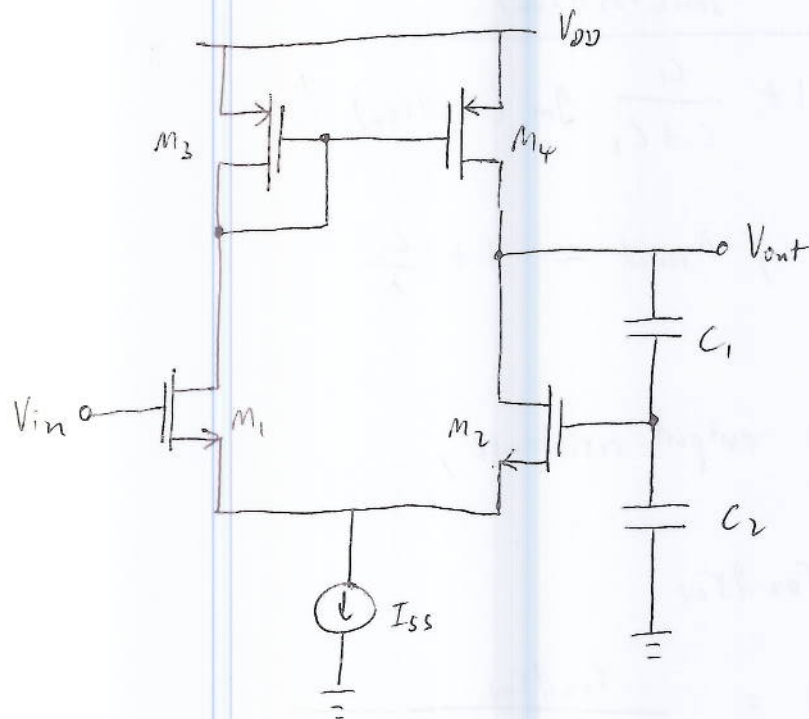 VDD
M3
M4
Vout
C1
Vin
M1
M2
C2
ISS